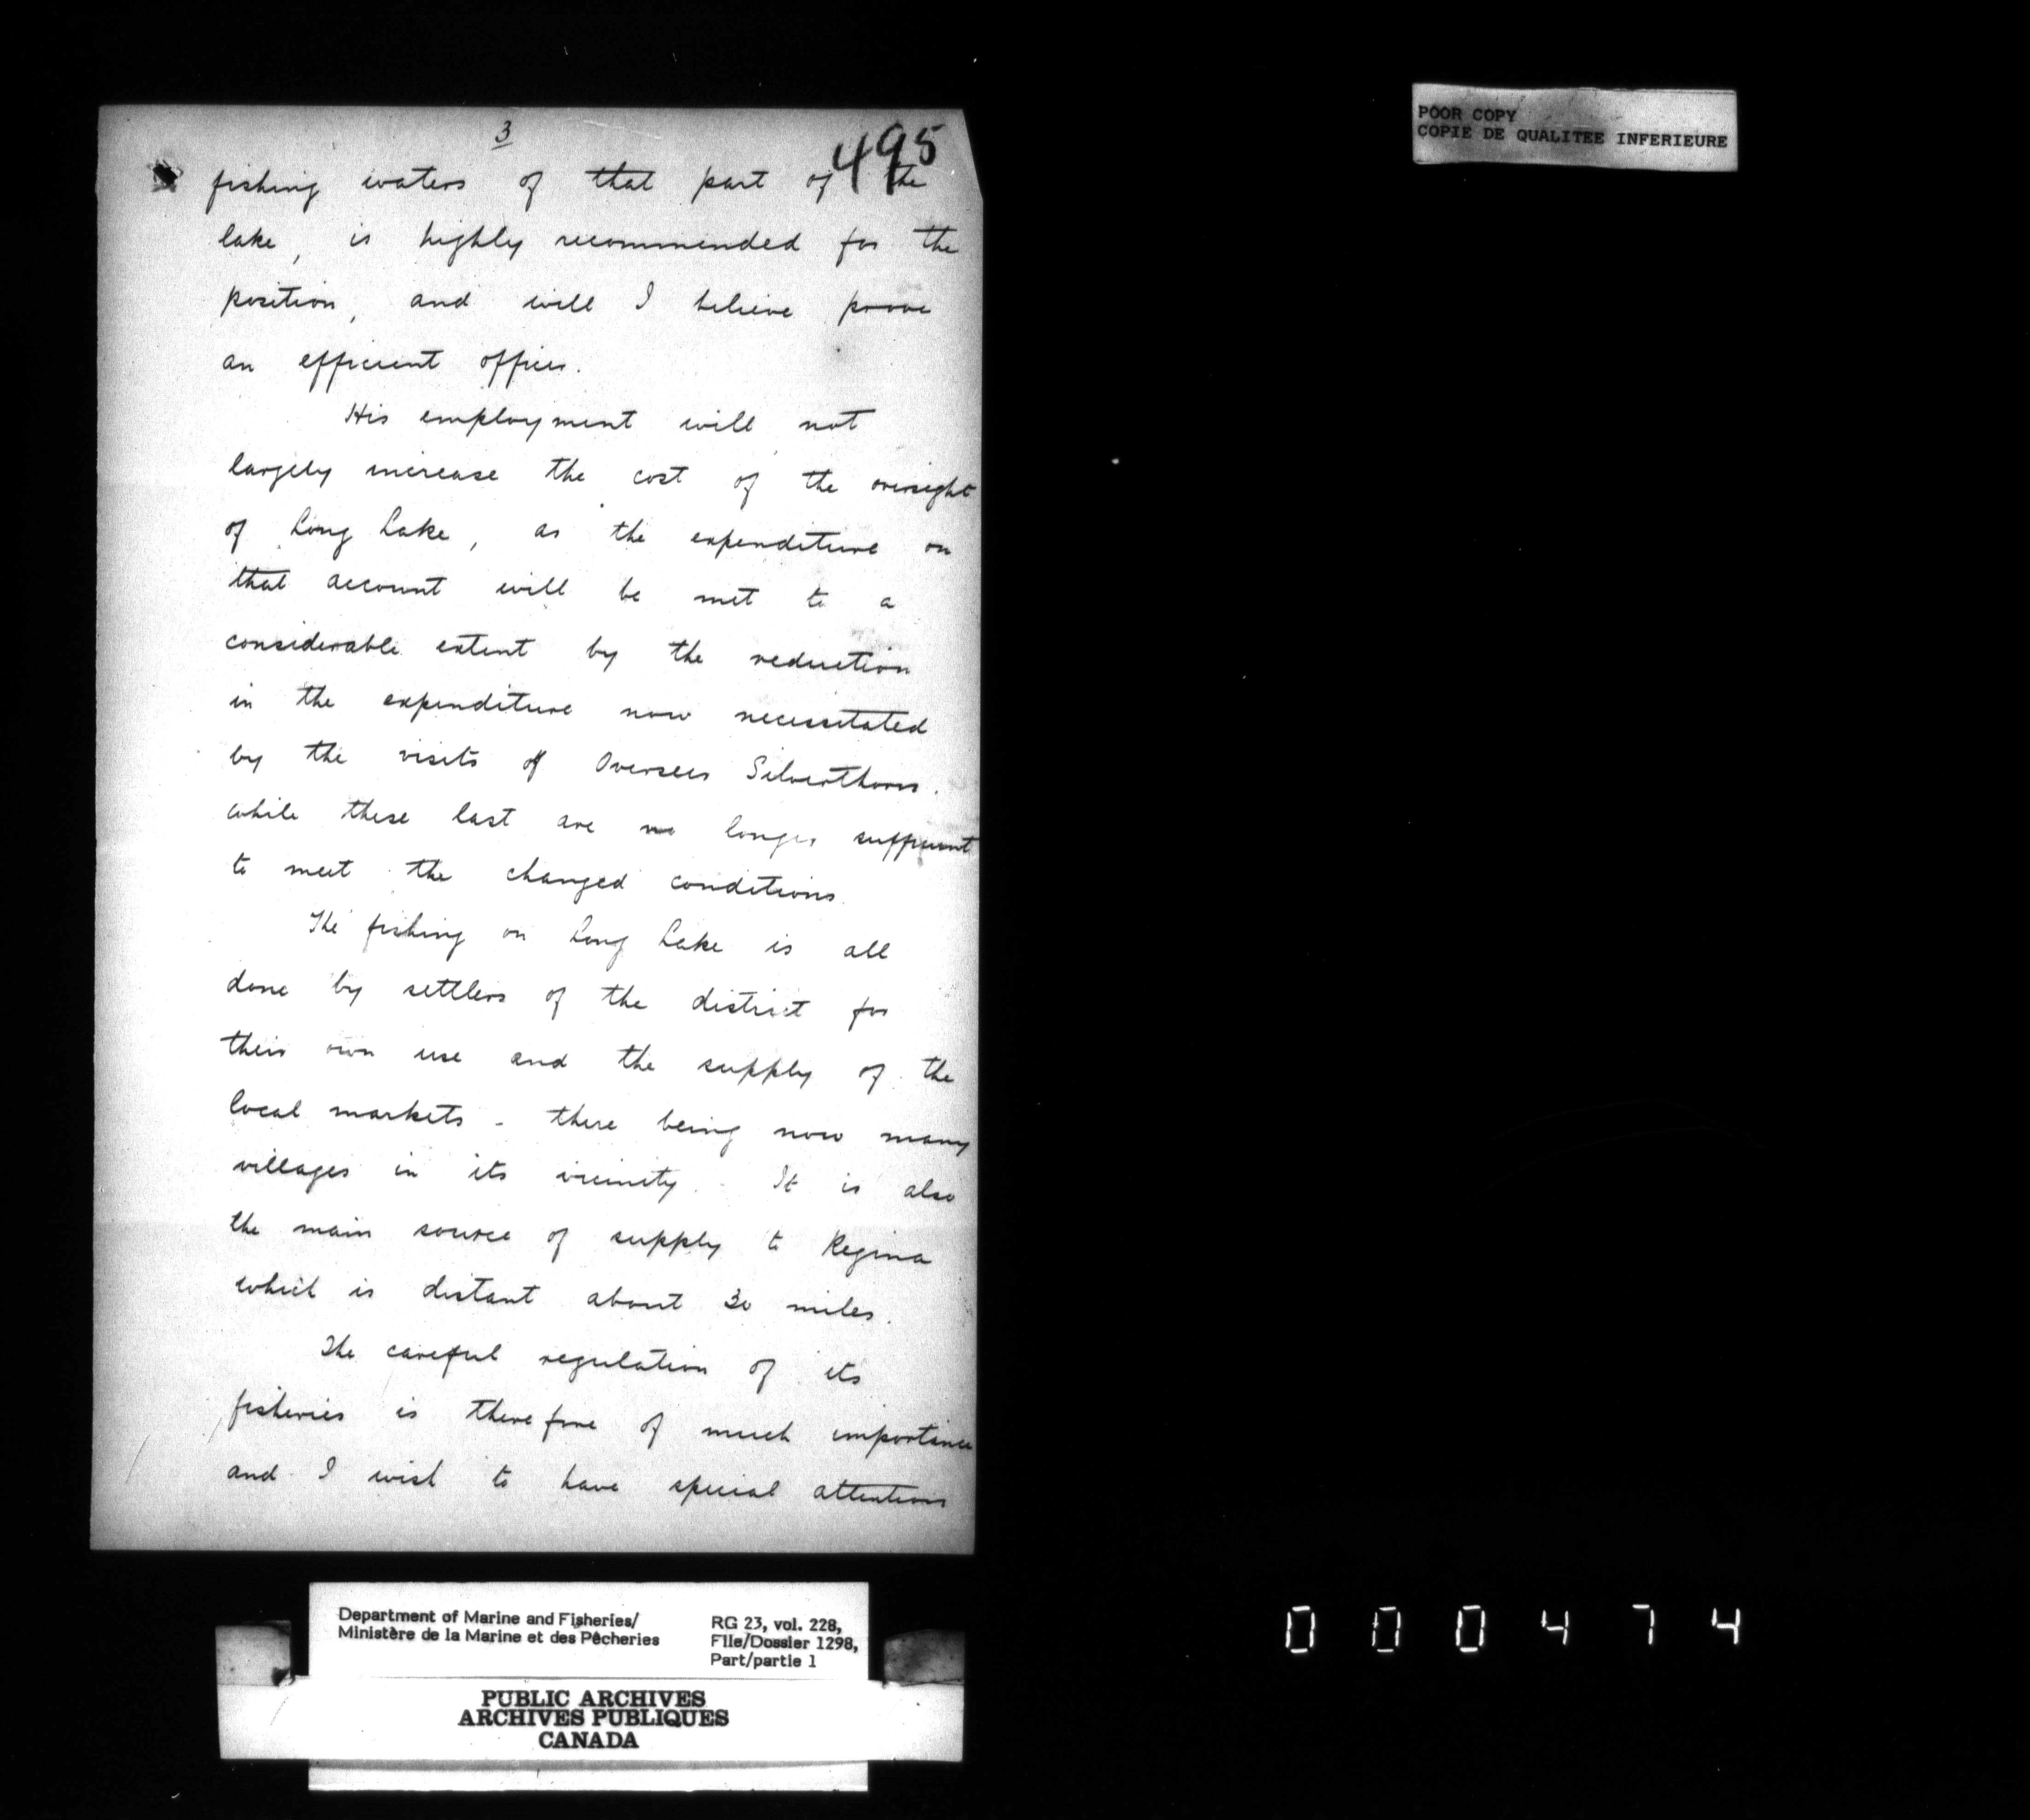 3
495
fishing waters of that part of the
lake, is highly recommended for the
position, and will I believe prove
an efficient officer.
His employment will not
largely increase the cost of the oversight
of Long Lake, as the expenditure on
that account will be met to a
considerable extent by the reduction
in the expenditure now necessitated
by the visits of Overseer Silverthorn.
while these last are no longer sufficient
to meet the changed conditions.
The fishing on Long Lake is all
done by settlers of the district for
their own use and the supply of the
local markets - there being now many
villages in its vicinity. It is also
the main source of supply to Regina
which is distant about 30 miles.
The careful regulation of its
fisheries is therefore of much importance
and I wish to have special attention
POOR COPY
COPIE DE QUALITEE INFERIEURE
Department of Marine and Fisheries/
Ministère de la Marine et des Pêcheries
RG 23, vol. 228,
File/Dossier 1298,
Part/partie 1
PUBLIC ARCHIVES
ARCHIVES PUBLIQUES
CANADA
000474